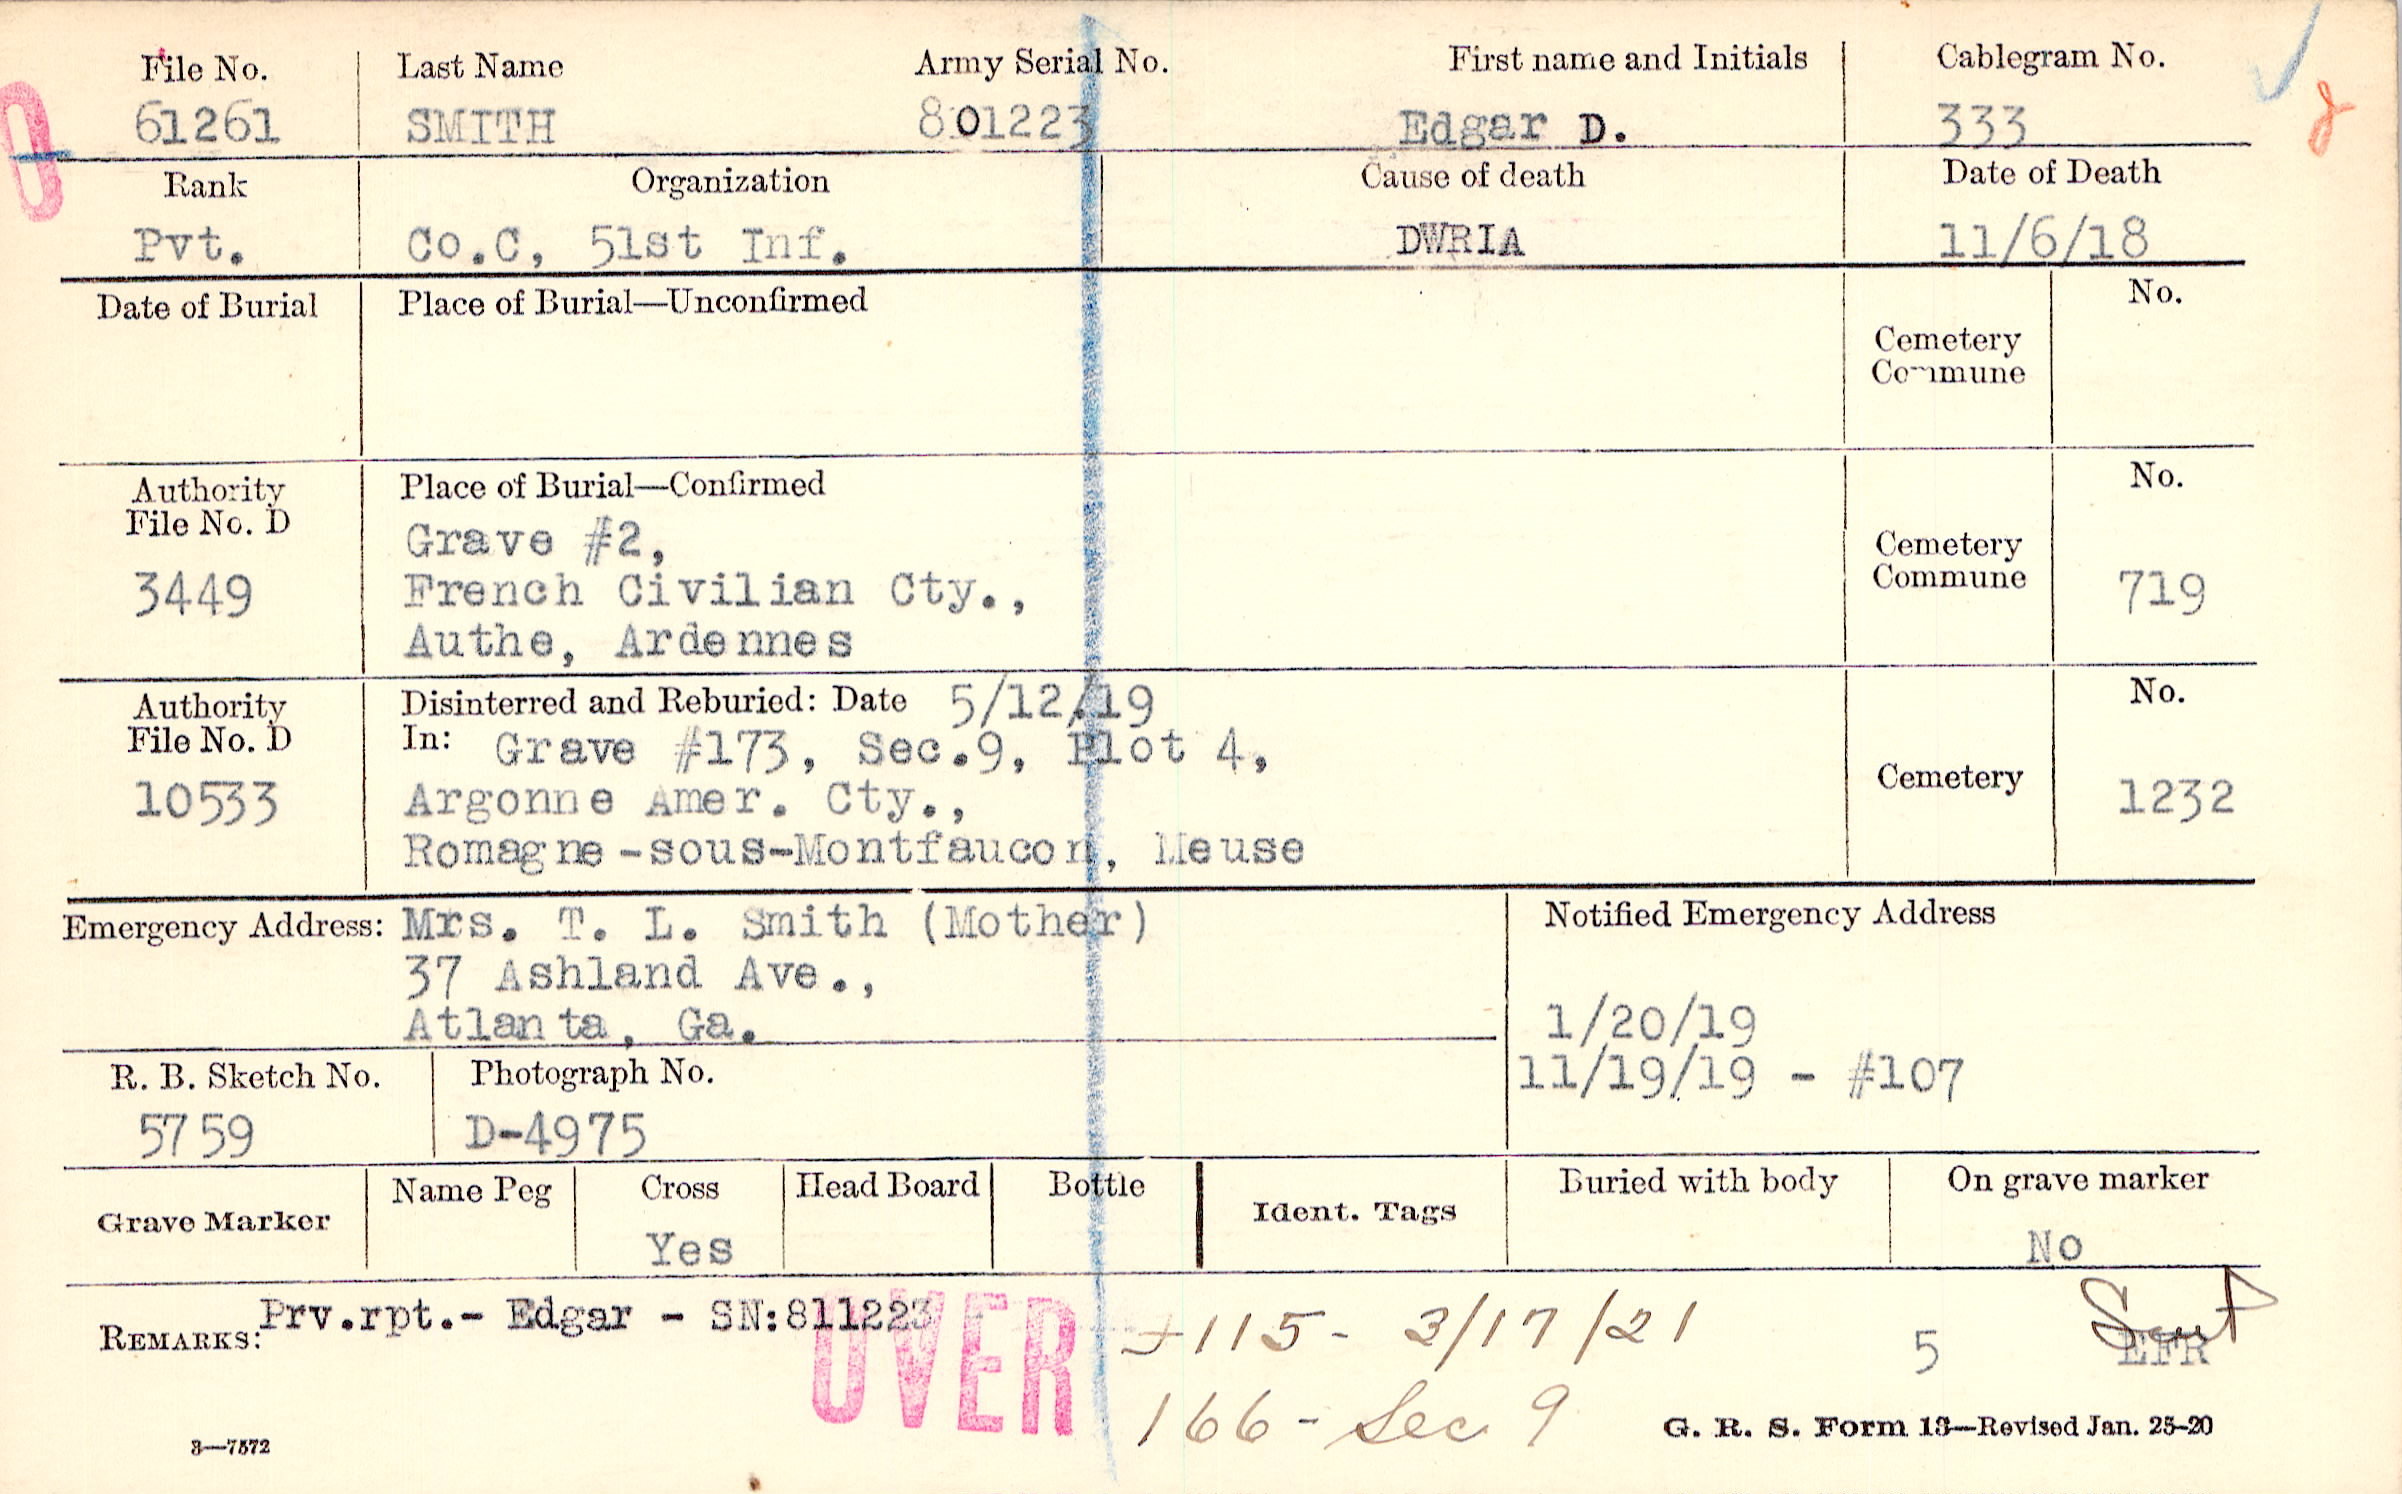 File No. Last Name Army Serial No. First name and Initials Cablegram No.
61261 SMITH 801223 Edgar D. 333
Rank Organization Cause of death Date of Death
Pvt. Co.C, 51st Inf. DWRIA 11/6/18
Date of Burial Place of Burial—Unconfirmed No.
Cemetery
Commune
Authority Place of Burial—Confirmed No.
File No. D
Grave #2,
Cemetery
Commune
3449 French Civilian Cty., 719
Authe, Ardennes
Authority Disinterred and Reburied: Date 5/12/19 No.
File No. D In: Grave #173, Sec.9, Plot 4,
Cemetery
10533 Argonne Amer. Cty., 1232
Romagne-sous-Montfaucon, Meuse
Emergency Address: Mrs. T. L. Smith (Mother) Notified Emergency Address
37 Ashland Ave.,
Atlanta, Ga. 1/20/19
R. B. Sketch No. Photograph No. 11/19/19 - #107
5759 D-4975
Grave Marker Name Peg Cross Head Board Bottle Ident. Tags Buried with body On grave marker
Yes No
REMARKS: Prv.rpt.- Edgar - SN:811223
OVER
115- 3/17/21 5 EFR Sent
166- Sec 9
3—7572 G. R. S. Form 13—Revised Jan. 25-20